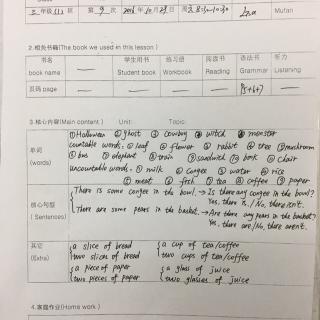 第 9 次
Mufan
2.相关书籍(The book we used in this lesson)
书名 学生用书 练习册 阅读书 语法书 听力
book name Student book Workbook Reading Grammar Listening
页码 page P5+6+7
3.核心内容(Main content) Unit: Topic:
单词
(words)
①Halloween ②ghost ③cowboy ④witch ⑤monster
countable words: ①leaf ②flower ③rabbit ④tree ⑤mushroom
⑥bus ⑦elephant ⑧train ⑨sandwich ⑩book ⑪chair
Uncountable words: ①milk ②congee ③water ④rice
⑤meat ⑥fish ⑦tea ⑧coffee ⑨paper
核心句型
(Sentences)
There is some congee in the bowl. → Is there any congee in the bowl?
Yes, there is. / No, there isn't.
There are some pears in the basket. → Are there any pears in the basket?
Yes, there are. / No, there aren't.
其它
(Extra)
a slice of bread a cup of tea/coffee
two slices of bread two cups of tea/coffee
a piece of paper a glass of juice
two pieces of paper two glasses of juice
4.家庭作业(Home work)